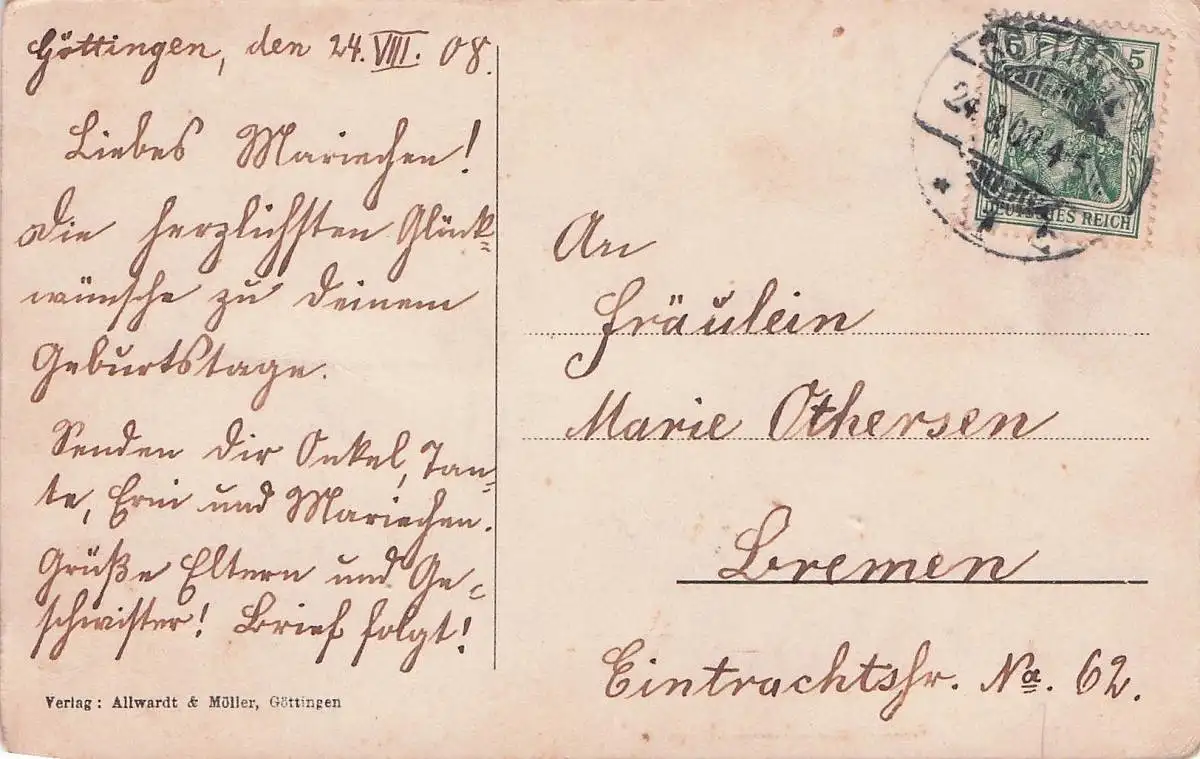 Göttingen, den 24. VIII. 08.
Liebes Mariechen!
Die herzlichsten Glück-
wünsche zu Deinem
Geburtstage.
Senden Dir Onkel, Tan-
te, Erni und Mariechen.
Grüße Eltern und Ge-
schwister! Brief folgt!
Verlag: Allwardt & Möller, Göttingen
5 5
DEUTSCHES REICH
24.8.08.4-5
An
Fräulein
Marie Othersen
Bremen
Eintrachtstr. No. 62.